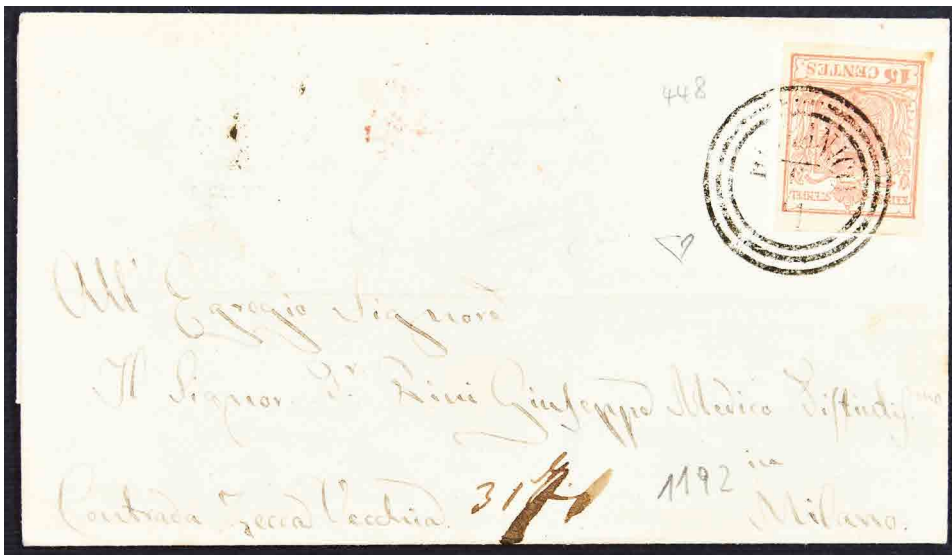 15 CENTES.
448
All' Egregio Signore
Il Signor Dr. Rini Giuseppe Medico Distintis.mo
Contrada Zecca Vecchia.
1192
Milano.